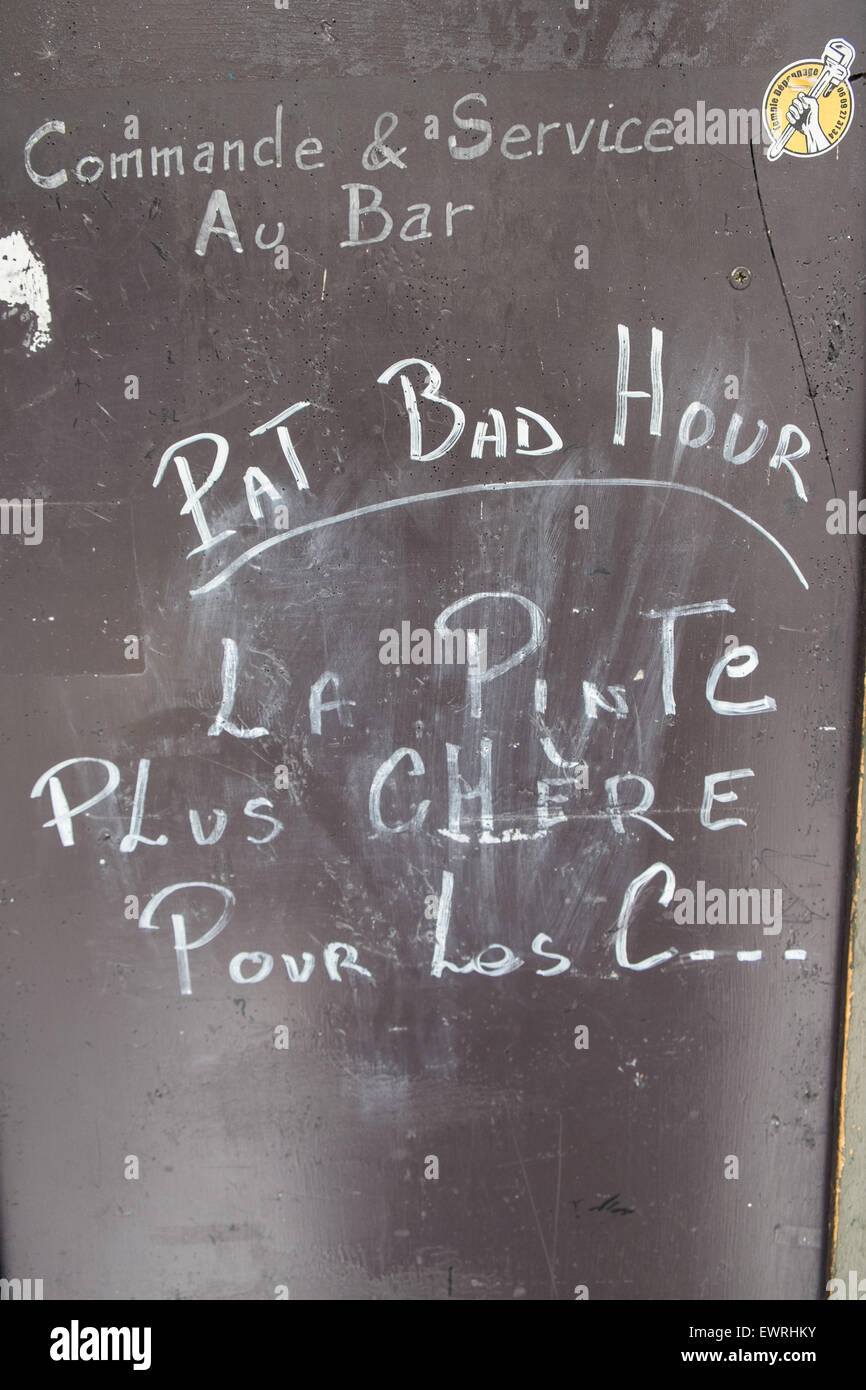 Commande & Service
Au Bar
Temple Dépannage
PAT BAD HOUR
LA PINTE
PLUS CHERE
POUR LES C---
a
alamy
alamy
Image ID: EWRHKY
www.alamy.com